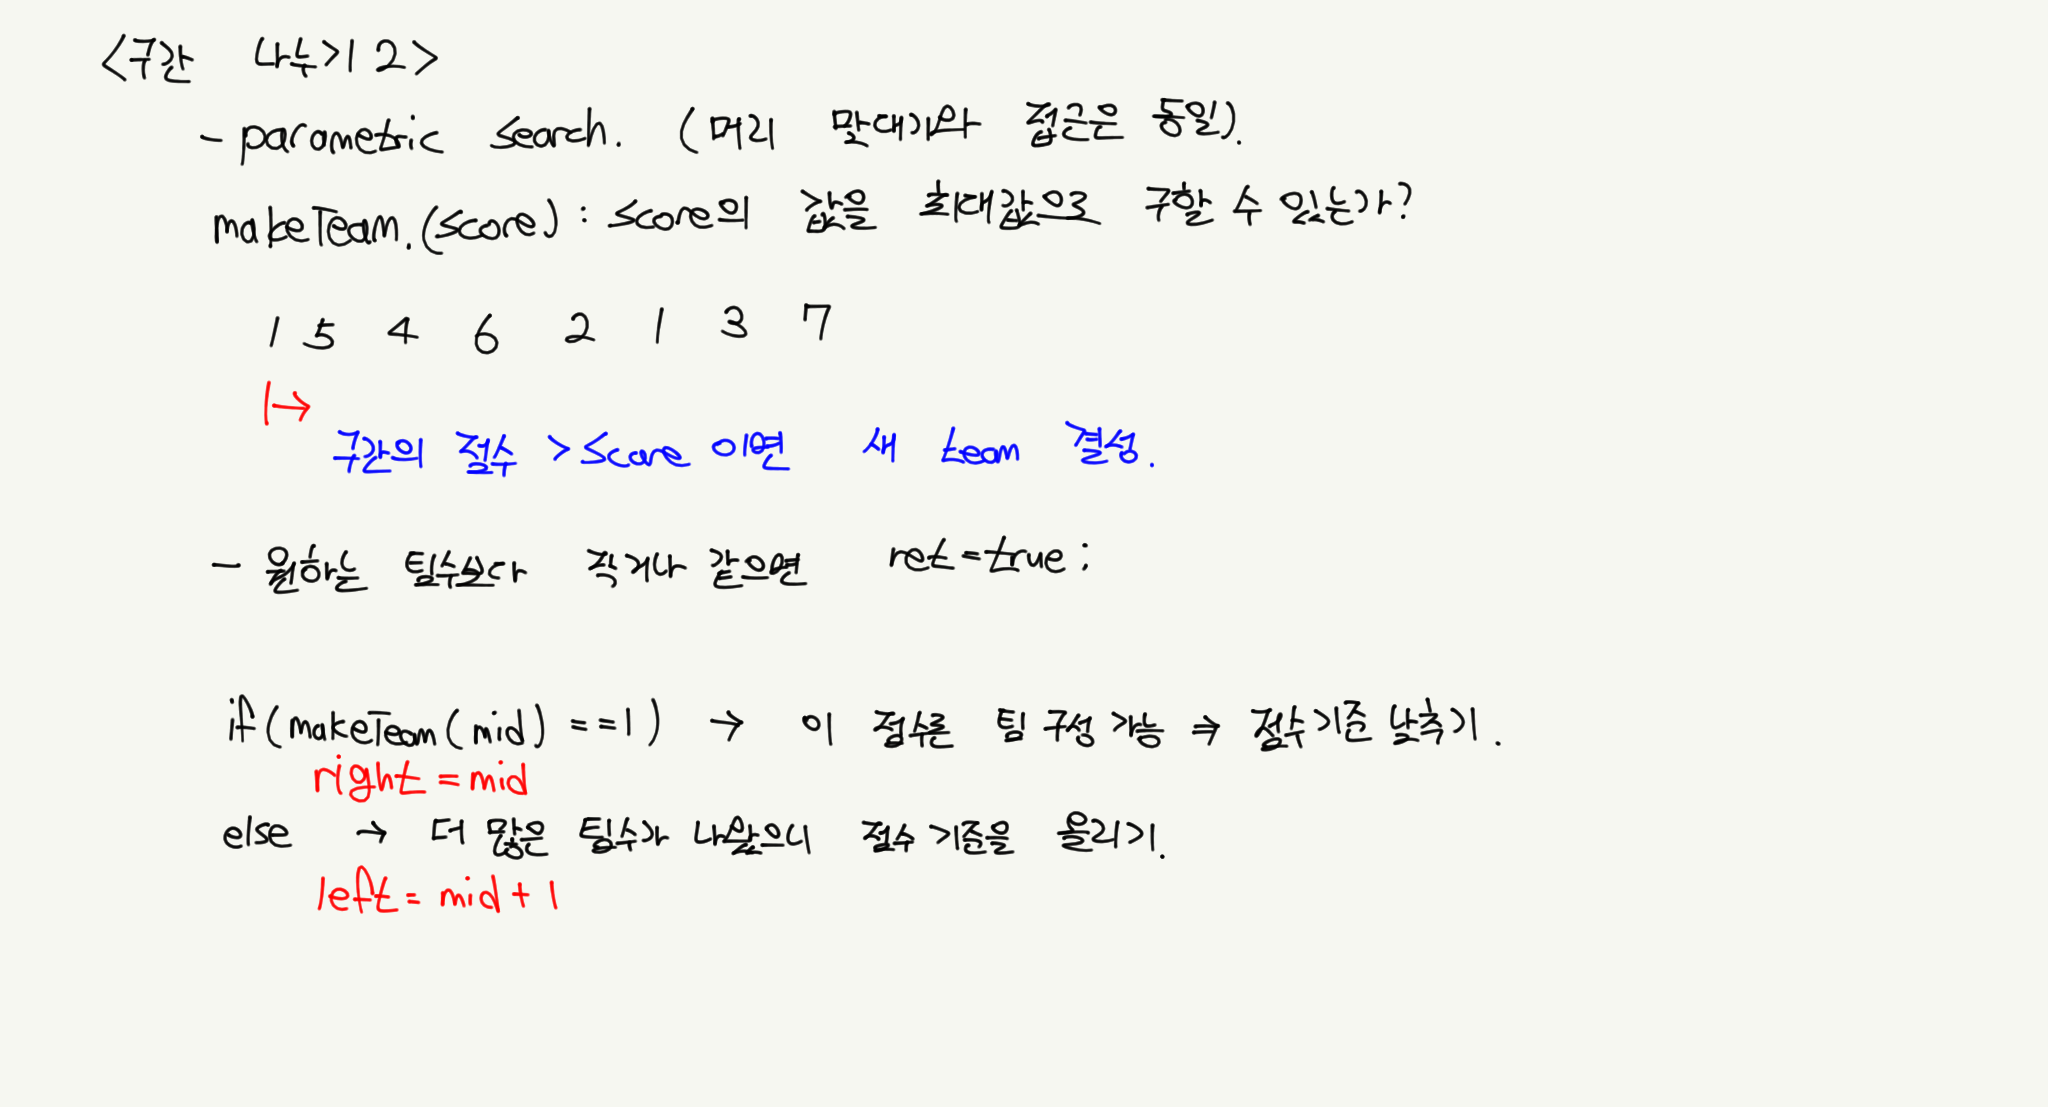 <구간 나누기 2>
- parametric search. (머리 말대기와 접근은 동일).
makeTeam.(score) : score의 값을 최대값으로 구할 수 있는가?
1 5 4 6 2 1 3 7
구간의 점수 > score 이면 새 team 결성.
- 원하는 팀수보다 작거나 같으면 ret = true;
if(makeTeam(mid) == 1) → 이 점수론 팀 구성 가능 ⇒ 점수기준 낮추기.
right = mid
else → 더 많은 팀수가 나왔으니 점수 기준을 올리기.
left = mid + 1